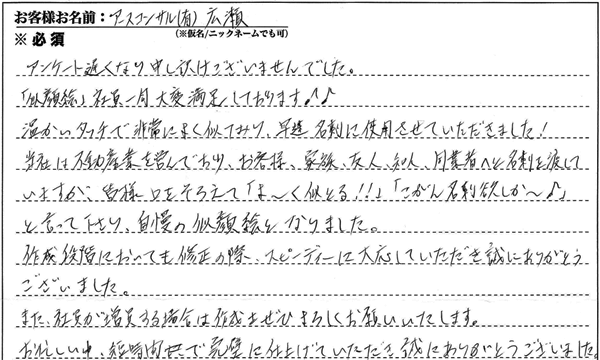 お客様お名前：アースコンサル(有) 広瀬
※必須 (※仮名/ニックネームでも可)
アンケート遅くなり申し訳ございませんでした。
「似顔絵」社員一同大変満足しております♪♪
温かいタッチで非常によく似ており、早速名刺に使用させていただきました！
当社は不動産業を営んでおり、お客様、家族、友人、知人、同業者へと名刺を渡して
いますが、皆様口をそろえて「よ～く似とる!!」「こがん名刺欲しか～♪」
と言って下さり、自慢の似顔絵となりました。
作成段階においても修正の際、スピーディーに対応していただき誠にありがとう
ございました。
また、社員が増員する場合は作成をぜひよろしくお願いいたします。
お忙しい中、短時間で完璧に仕上げていただき誠にありがとうございました